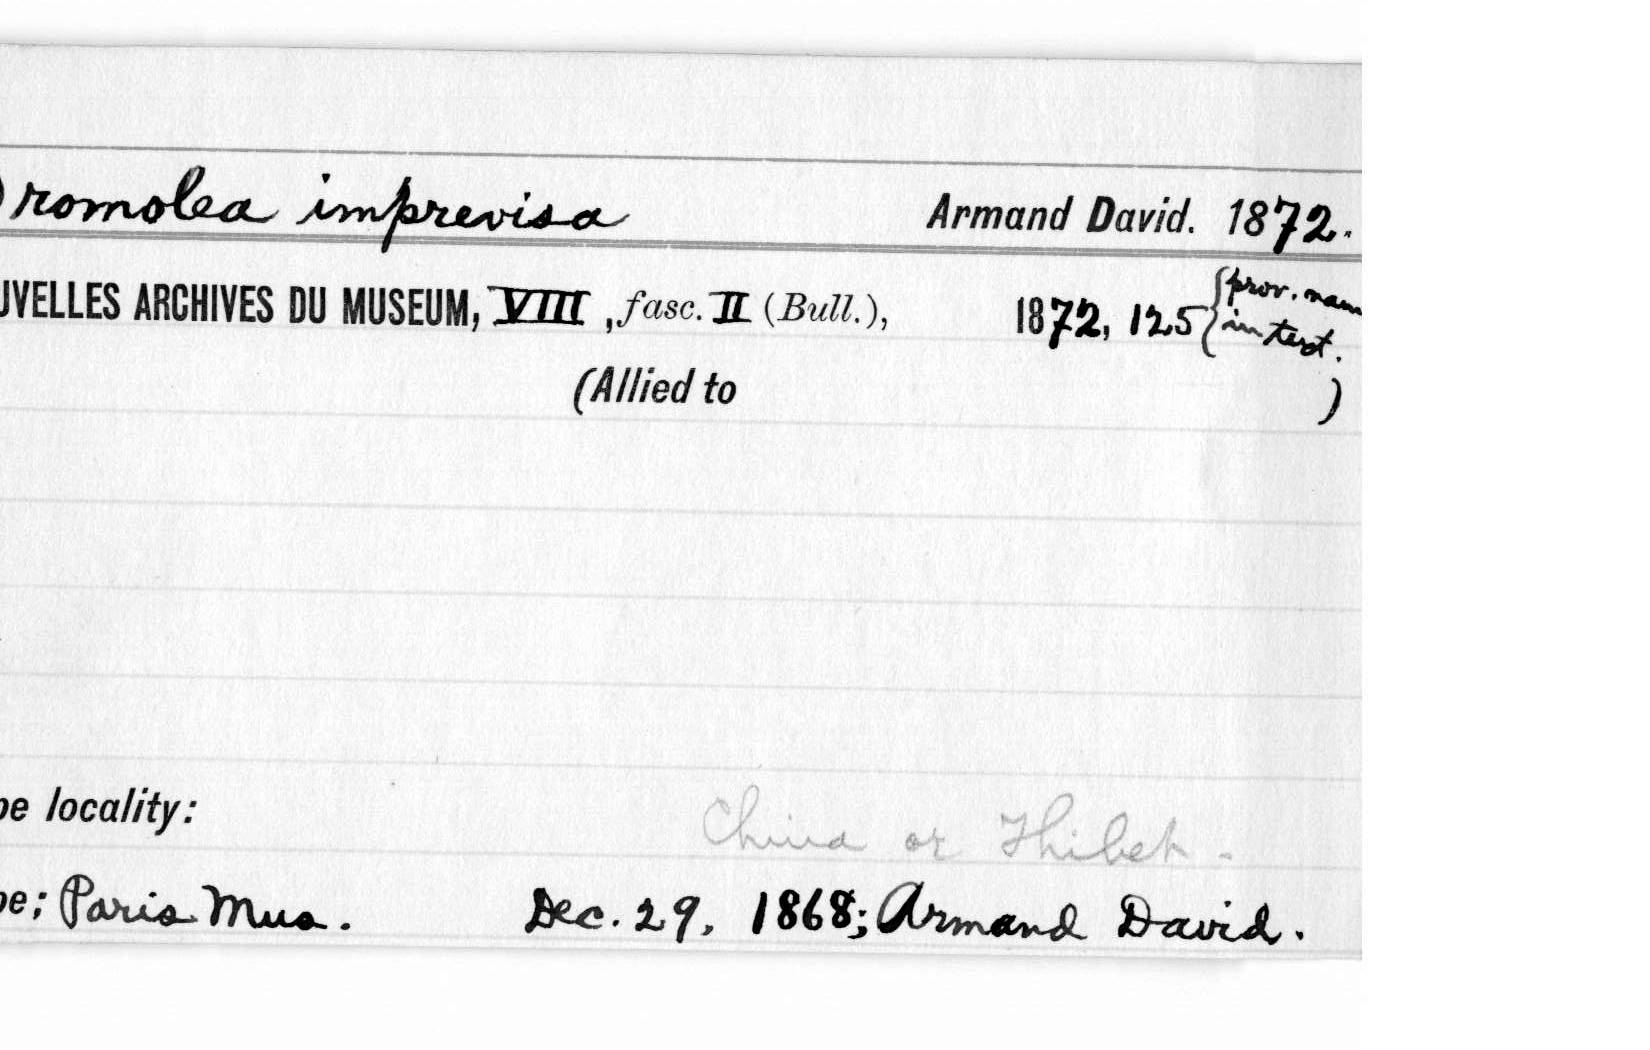 Dromolea imprevisa Armand David. 1872.
UVELLES ARCHIVES DU MUSEUM, VIII , fasc. II (Bull.), 1872, 125 {prov. nam
in text.
(Allied to )
pe locality: China or Thibet -
pe; Paris Mus. Dec. 29, 1868; Armand David.